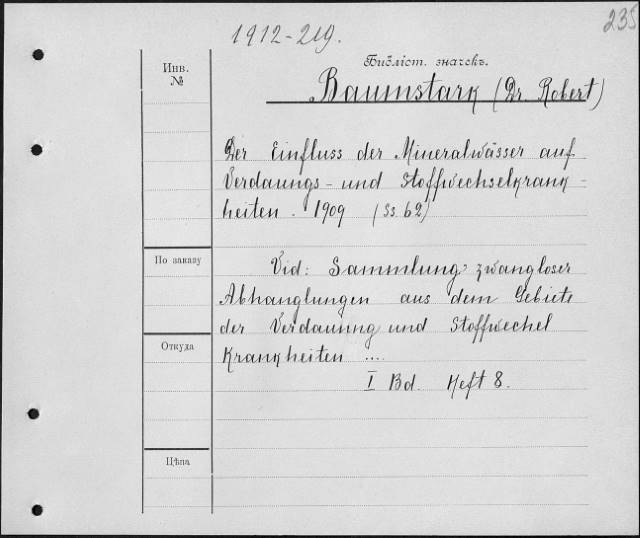 1912-219.
235
Инв.
№
Библіот. значекъ.
Baumstark (Dr. Robert)
Der Einfluss der Mineralwässer auf
Verdauungs- und Stoffwechselkrank-
heiten. 1909 (Ss. 62)
По заказу
Vid: Sammlung zwangloser
Abhanglungen aus dem Gebiete
der Verdauung und Stoffwechel
Krankheiten ....
Откуда
I Bd. Heft 8.
Цѣна